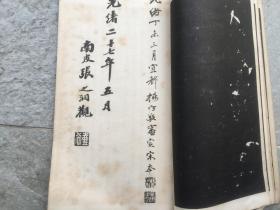 光緒丁未三月宜都楊守敬審定宋本
光緒二十七年五月
南皮張之洞觀